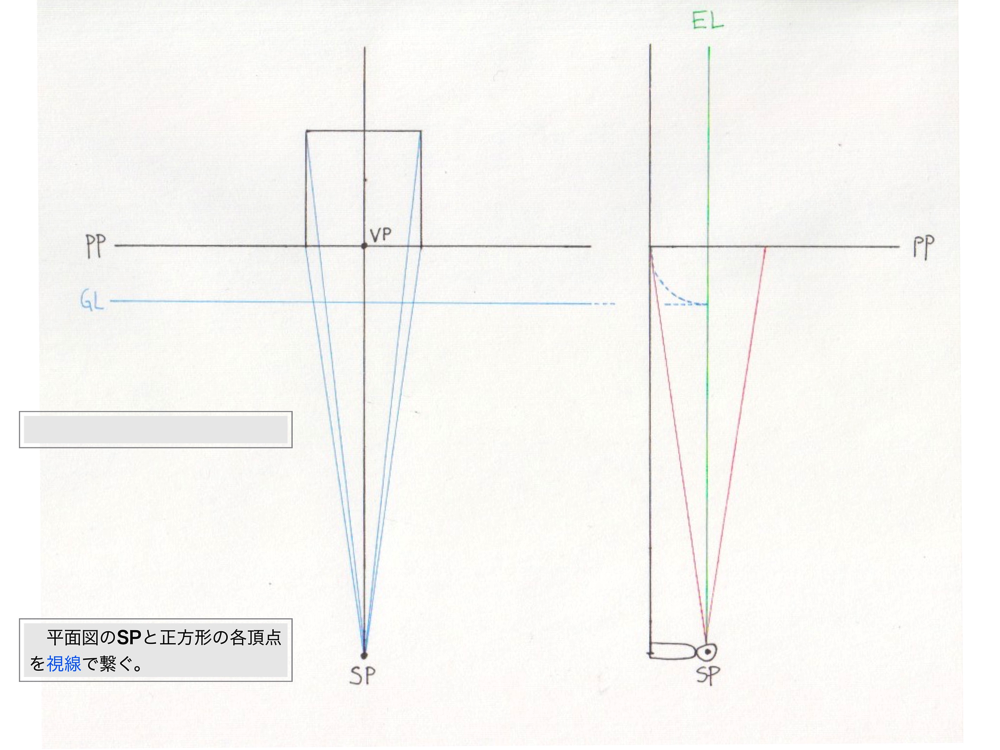 EL
VP
PP
PP
GL
平面図のSPと正方形の各頂点
を視線で繋ぐ。
SP
SP